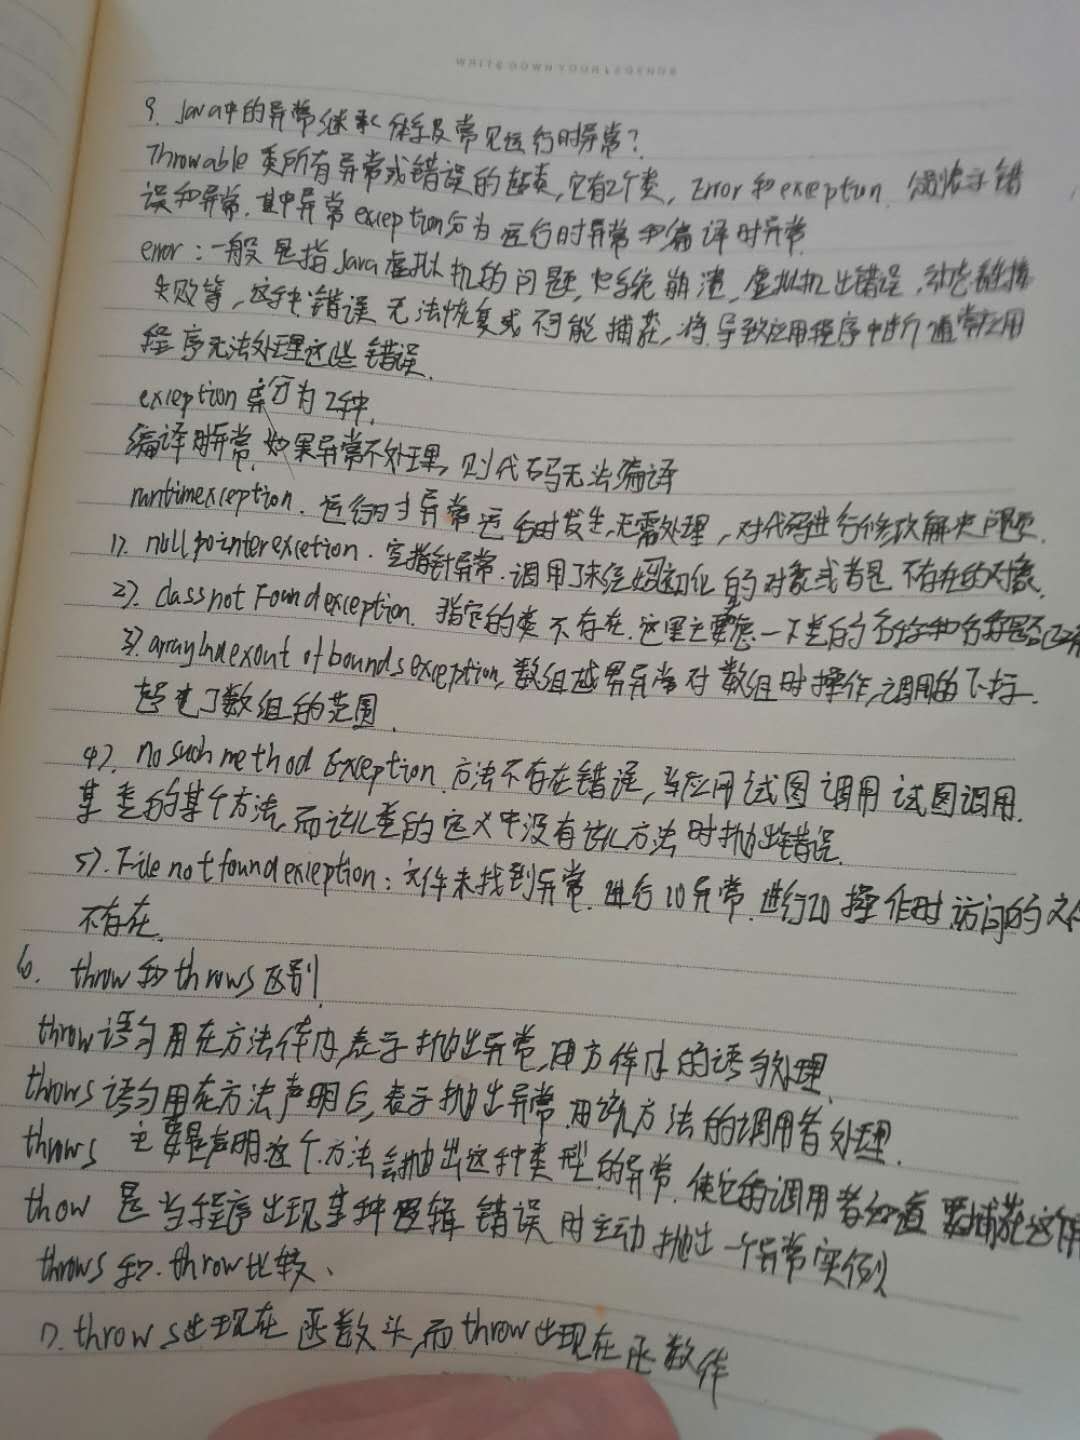 WRITE DOWN YOUR LEGENDS
9. Java中的异常继承体系及常见运行时异常?
Throwable 类所有异常或错误的超类,它有2个类, Error 和 exception 分别表示错
误和异常.其中异常 exception分为运行时异常和编译时异常
error:一般是指Java虚拟机的问题,如系统崩溃,虚拟机出错误,动态链接
失败等,这种错误无法恢复或不可能捕获,将导致应用程序中断通常应用
程序无法处理这些错误.
exception 分为2种,
编译时异常.如果异常不处理,则代码无法编译
runtimexception. 运行时异常运行时发生,无需处理,对代码进行修改解决问题.
1). null pointer excetion. 空指针异常.调用了未经初始化的对象或者是不存在的对象.
2). class not Found exception. 指定的类不存在.这里主要考虑一下类的名称和
3). array Index out of bounds exception, 数组越界异常对数组时操作,调用的下标
超过了数组的范围.
4). no such method Exception 方法不存在错误,当应用试图调用试图调用.
某类的某个方法,而该类的定义中没有该方法时抛出错误.
5). File not found exception:文件未找到异常.进行IO异常.进行IO操作时访问的文件
不存在.
6. throw和throws区别
throw语句用在方法体内,表示抛出异常,由方体内的语句处理
throws语句用在方法声明后,表示抛出异常.由该方法的调用者处理.
throws 主要是声明这个方法会抛出这种类型的异常.使它的调用者知道要捕获这个
thow 是当程序出现某种逻辑错误时主动抛出一个异常实例
throws和.throw比较、
1). throws出现在函数头,而throw出现在函数体